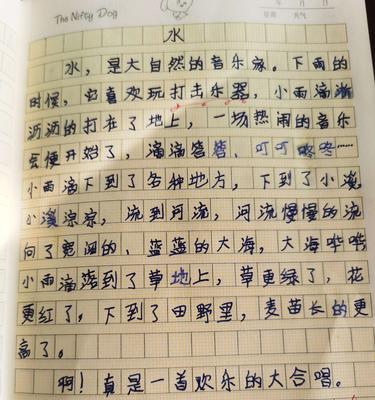 The Nifty Dog
年 月 日
星期 天气
水
水，是大自然的音乐家。下雨的
时候，它喜欢玩打击乐器，小雨滴淅
沥沥的打在了地上，一场热闹的音乐
会便开始了，滴滴答答、叮叮咚咚……
小雨滴下到了各种地方，下到了小溪，
小溪淙淙，流到河流，河流慢慢的流
向了宽阔的、蓝蓝的大海，大海哗哗
小雨滴落到了草地上，草更绿了，花
更红了。下到了田野里，麦苗长的更
高了。
啊！真是一首欢乐的大合唱。